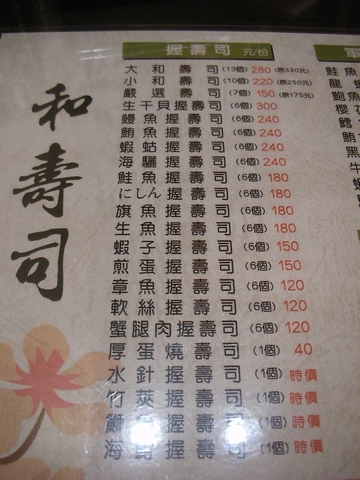 和壽司
握壽司 元/份
大和壽司(13個)280(原330元)
小和壽司(10個)220(原250元)
嚴選壽司(7個)150(原175元)
生干貝握壽司(6個)300
鰻魚握壽司(6個)240
鮪魚握壽司(6個)240
蝦蛄握壽司(6個)240
海鱺握壽司(6個)240
鮭魚握壽司(6個)180
にしん握壽司(6個)180
旗魚握壽司(6個)180
生魚握壽司(6個)180
蝦子握壽司(6個)150
煎蛋握壽司(6個)150
章魚握壽司(6個)120
軟絲握壽司(6個)120
蟹腿肉握壽司(6個)120
厚蛋燒壽司(1個)40
水針握壽司(1個)時價
竹莢握壽司(1個)時價
鰤魚握壽司(1個)時價
海膽握壽司(1個)時價
鮭魚
龍蝦
鮑魚
櫻花
鱈
鮪
黑
牛